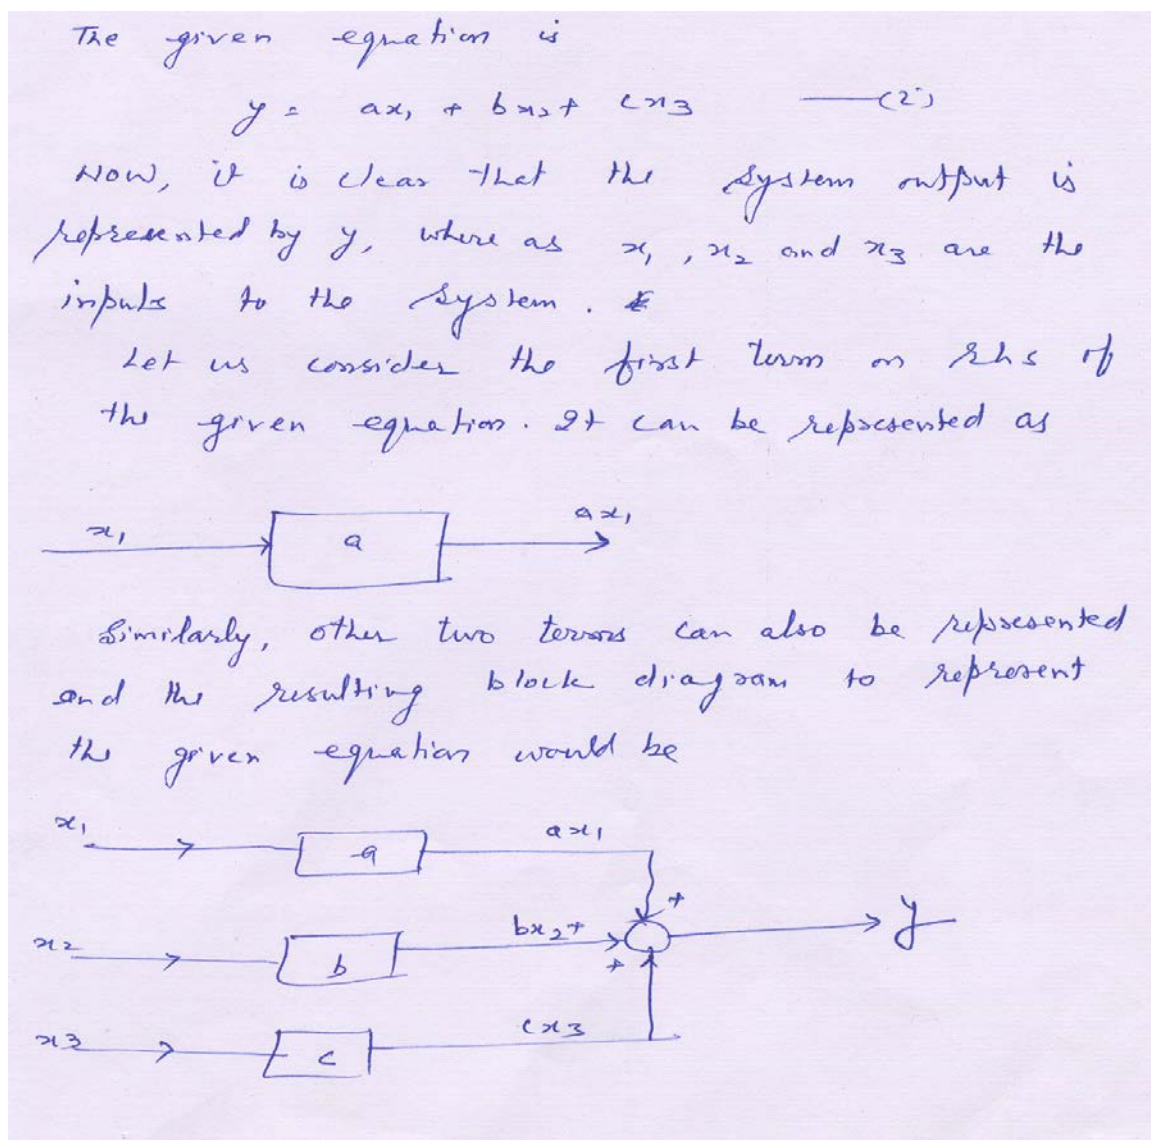 The given equation is
y = ax₁ + bx₂ + cx₃ ——(2)
Now, it is clear that the system output is
represented by y, where as x₁, x₂ and x₃ are the
inputs to the system.
Let us consider the first term on rhs of
the given equation. It can be represented as
x₁ a ax₁
Similarly, other two terms can also be represented
and the resulting block diagram to represent
the given equation would be
x₁ a ax₁
+
x₂ b bx₂ + y
+
x₃ c cx₃